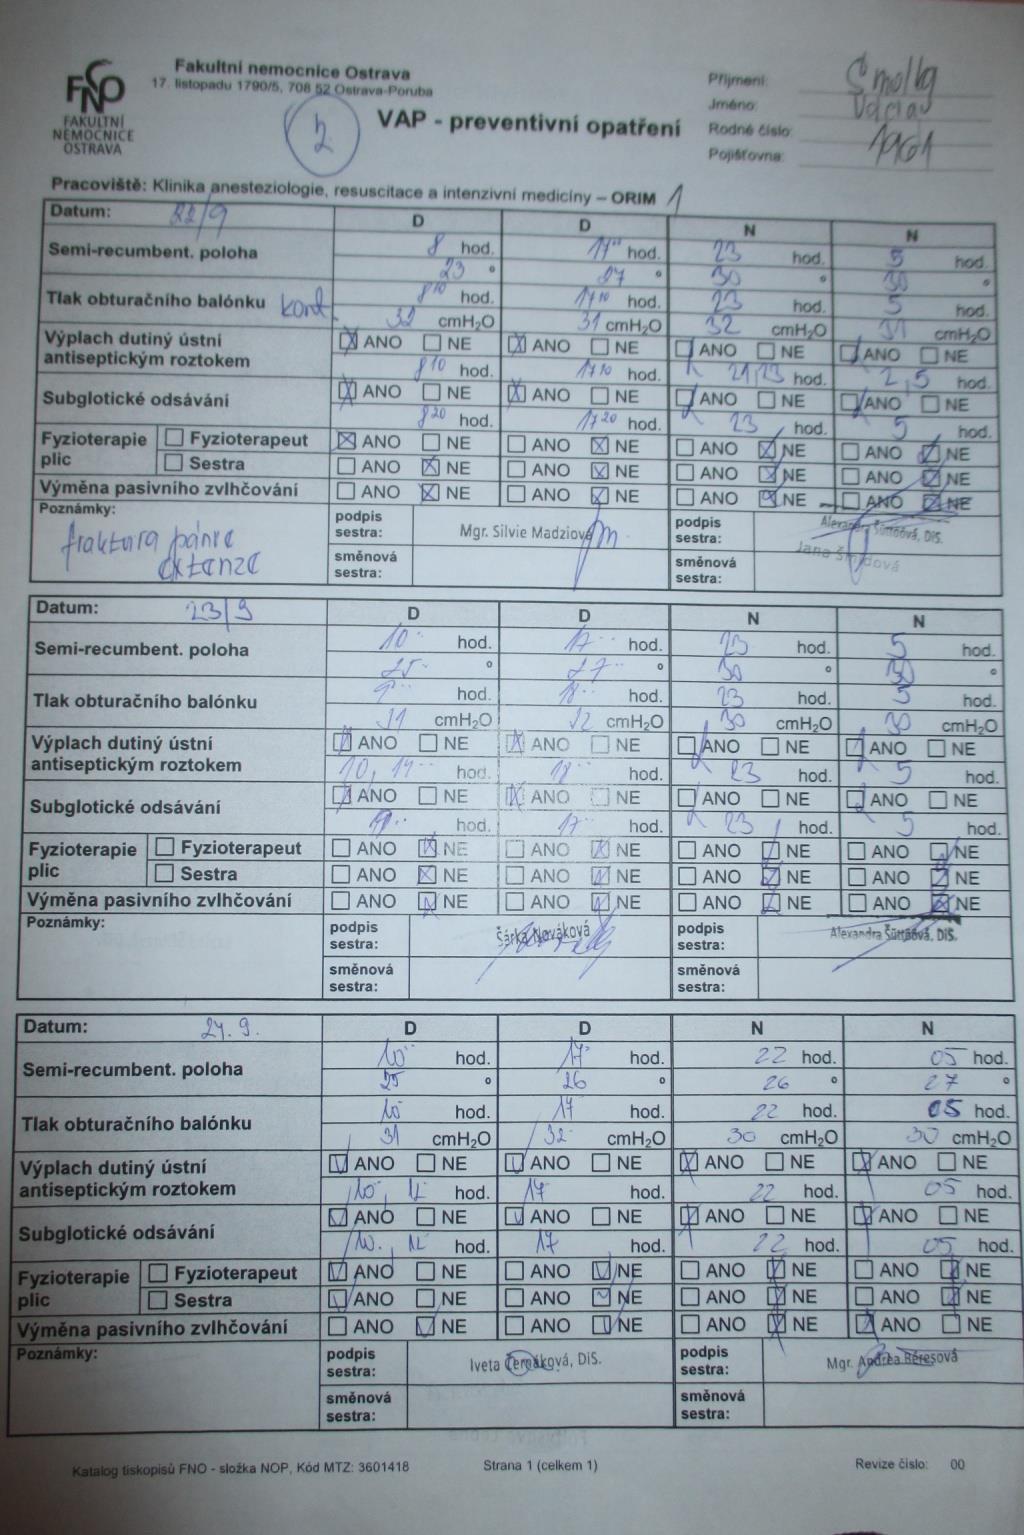 Fakultní nemocnice Ostrava
17. listopadu 1790/5, 708 52 Ostrava-Poruba
FNO
FAKULTNÍ
NEMOCNICE
OSTRAVA
2.
VAP - preventivní opatření
Příjmení:
Jméno:
Rodné číslo: 1961
Pojišťovna:
Pracoviště: Klinika anesteziologie, resuscitace a intenzivní medicíny – ORIM 1
Datum: 22/9 D D N N
Semi-recumbent. poloha 8 hod. 17⁰⁰ hod. 23 hod. 5 hod.
23 ° 27 ° 30 ° 30 °
Tlak obturačního balónku kont. 8¹⁰ hod. 17¹⁰ hod. 23 hod. 5 hod.
32 cmH₂O 31 cmH₂O 32 cmH₂O 31 cmH₂O
Výplach dutiný ústní ANO NE ANO NE ANO NE ANO NE
antiseptickým roztokem 8¹⁰ hod. 17¹⁰ hod. 21,23 hod. 2,5 hod.
Subglotické odsávání ANO NE ANO NE ANO NE ANO NE
8²⁰ hod. 17²⁰ hod. 23 hod. 5 hod.
Fyzioterapie plic Fyzioterapeut ANO NE ANO NE ANO NE ANO NE
Sestra ANO NE ANO NE ANO NE ANO NE
Výměna pasivního zvlhčování ANO NE ANO NE ANO NE ANO NE
Poznámky: fraktura pánve
extenze
podpis sestra: Mgr. Silvie Madziová podpis sestra: Alexandra Šüttöová, DiS.
Jana Šmídová
směnová sestra: směnová sestra:
Datum: 23/9 D D N N
Semi-recumbent. poloha 10 hod. 17 hod. 23 hod. 5 hod.
25 ° 27 ° 30 ° 30 °
Tlak obturačního balónku hod. 18 hod. 23 hod. 5 hod.
31 cmH₂O 32 cmH₂O 30 cmH₂O 30 cmH₂O
Výplach dutiný ústní ANO NE ANO NE ANO NE ANO NE
antiseptickým roztokem 10, 14 hod. 18 hod. 23 hod. 5 hod.
Subglotické odsávání ANO NE ANO NE ANO NE ANO NE
hod. 17 hod. 23 hod. 5 hod.
Fyzioterapie plic Fyzioterapeut ANO NE ANO NE ANO NE ANO NE
Sestra ANO NE ANO NE ANO NE ANO NE
Výměna pasivního zvlhčování ANO NE ANO NE ANO NE ANO NE
Poznámky:
podpis sestra: Šárka Nováková podpis sestra: Alexandra Šüttöová, DiS.
směnová sestra: směnová sestra:
Datum: 24. 9. D D N N
Semi-recumbent. poloha 10 hod. 17 hod. 22 hod. 05 hod.
25 ° 26 ° 26 ° 27 °
Tlak obturačního balónku 10 hod. 17 hod. 22 hod. 05 hod.
31 cmH₂O 32 cmH₂O 30 cmH₂O 30 cmH₂O
Výplach dutiný ústní ANO NE ANO NE ANO NE ANO NE
antiseptickým roztokem 10, 12 hod. 17 hod. 22 hod. 05 hod.
Subglotické odsávání ANO NE ANO NE ANO NE ANO NE
10, 12 hod. 17 hod. 22 hod. 05 hod.
Fyzioterapie plic Fyzioterapeut ANO NE ANO NE ANO NE ANO NE
Sestra ANO NE ANO NE ANO NE ANO NE
Výměna pasivního zvlhčování ANO NE ANO NE ANO NE ANO NE
Poznámky:
podpis sestra: Iveta DiS. podpis sestra: Mgr. Andrea Béresová
směnová sestra: směnová sestra:
Katalog tiskopisů FNO - složka NOP, Kód MTZ: 3601418 Strana 1 (celkem 1) Revize číslo: 00